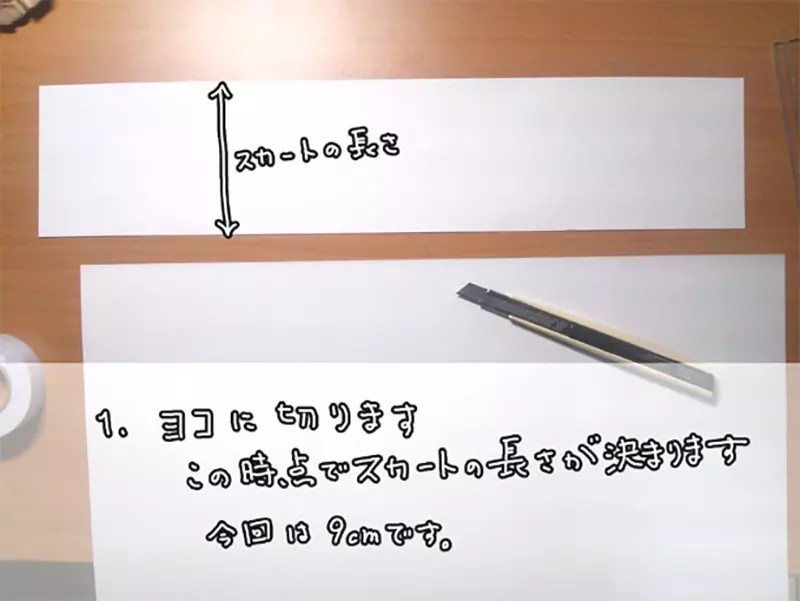 スカートの長さ
1. ヨコに切ります
この時点でスカートの長さが決まります
今回は9cmです。